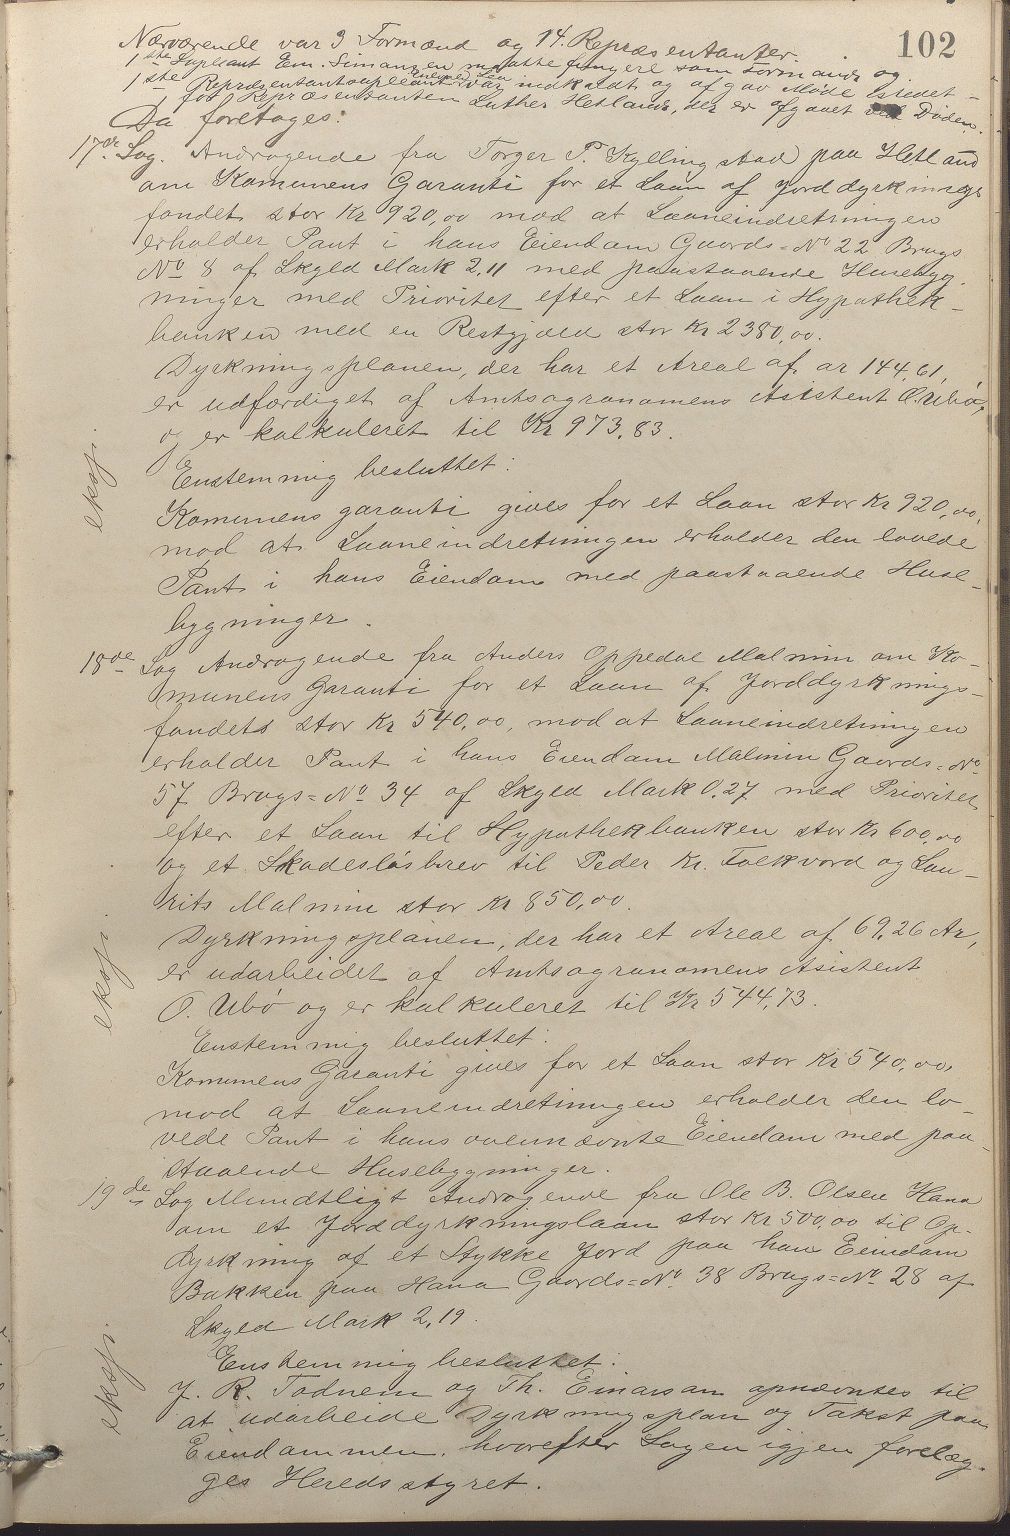 102
Nærværende var 3 Formænd og 14. Repræsentanter.
1ste Supleant Em. Simonsen maatte fungere som Formand og
1ste Repræsentantsupleant var indkaldt og afgav Møde istedet-
for Repræsentanten Luther Hetland, der er afgaaet ved Døden.
Da foretoges:
17de Sag. Andragende fra Torger T. Kyllingstad paa Hetland
om Komunens Garanti for et Laan af Jorddyrknings
fondet stor Kr 920,00 mod at Laaneindretningen
erholder Pant i hans Eiendom Gaards=No 22 Brugs
No 8 af Skyld Mark 2,11 med paastaaende Husebyg
ninger med Prioritet efter et Laan i Hypothek-
banken med en Restgjæld stor Kr 2380,00.
Dyrkningsplanen, der har et Areal af ar 144,61,
er udfærdiget af Amtsagronomens Asistent O. Ubø,
og er kalkuleret til Kr 973,83.
Enstemmig besluttet:
eksp.
Komunens garanti gives for et Laan stor Kr 920,00,
mod at Laaneindretningen erholder den lovede
Pant i hans Eiendom med paastaaende Huse-
bygninger.
18de Sag Andragende fra Anders Oppedal Malmin om Ko-
munens Garanti for et Laan af Jorddyrknings-
fondets stor Kr 540,00, mod at Laaneindretningen
erholder Pant i hans Eiendom Malmin Gaards=No
57 Brugs=No 34 af Skyld Mark 0,27 med Prioritet
efter et Laan til Hypothekbanken stor Kr 600,00
og et Skadesløsbrev til Peder Kr. Folkvord og Lau-
rits Malmin stor Kr 850,00.
Dyrkningsplanen, der har et Areal af 69,26 Ar,
er udarbeidet af Amtsagronomens Asistent
eksp.
O. Ubø og er kalkuleret til Kr 544,73.
Enstemmig besluttet:
Komunens Garanti gives for et Laan stor Kr 540,00,
mod at Laaneindretningen erholder den lo-
vede Pant i hans ovennævnte Eiendom med paa-
staaende Husebygninger.
19de Sag Mundtligt Andragende fra Ole B. Olsen Hana
om et Jorddyrkningslaan stor Kr 500,00 til Op-
dyrkning af et Stykke Jord paa han Eiendom
Bakken paa Hana Gaards=No 38 Brugs=No 28 af
Skyld Mark 2,19.
Enstemmig besluttet:
eksp.
J. R. Todnem og Th. Einarson opnævntes til
at udarbeide Dyrkningsplan og Takst paa
Eiendommen, hvorefter Sagen igjen forelæg-
ges Heredsstyret.